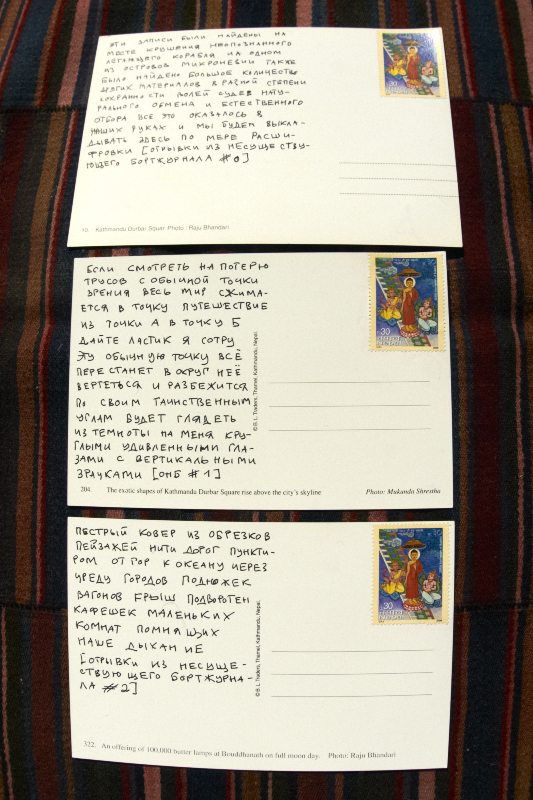 ЭТИ ЗАПИСИ БЫЛИ НАЙДЕНЫ НА
МЕСТЕ КРУШЕНИЯ НЕОПОЗНАННОГО
ЛЕТАЮЩЕГО КОРАБЛЯ НА ОДНОМ
ИЗ ОСТРОВОВ МИКРОНЕЗИИ ТАКЖЕ
БЫЛО НАЙДЕНО БОЛЬШОЕ КОЛИЧЕСТВО
ДРУГИХ МАТЕРИАЛОВ В РАЗНОЙ СТЕПЕНИ
СОХРАННОСТИ ВОЛЕЙ СУДЕБ НАТУ-
РАЛЬНОГО ОБМЕНА И ЕСТЕСТВЕННОГО
ОТБОРА ВСЕ ЭТО ОКАЗАЛОСЬ В
НАШИХ РУКАХ И МЫ БУДЕМ ВЫКЛА-
ДЫВАТЬ ЗДЕСЬ ПО МЕРЕ РАСШИ-
ФРОВКИ [ОТРЫВКИ ИЗ НЕСУЩЕСТВУ-
ЮЩЕГО БОРТЖУРНАЛА #0]
10. Kathmandu Durbar Squar Photo : Raju Bhandari
ЕСЛИ СМОТРЕТЬ НА ПОТЕРЮ
ТРУСОВ С ОБЫЧНОЙ ТОЧКИ
ЗРЕНИЯ ВЕСЬ МИР СЖИМА-
ЕТСЯ В ТОЧКУ ПУТЕШЕСТВИЕ
ИЗ ТОЧКИ А В ТОЧКУ Б
ДАЙТЕ ЛАСТИК Я СОТРУ
ЭТУ ОБЫЧНУЮ ТОЧКУ ВСЁ
ПЕРЕСТАНЕТ ВОКРУГ НЕЁ
ВЕРТЕТЬСЯ И РАЗБЕЖИТСЯ
ПО СВОИМ ТАИНСТВЕННЫМ
УГЛАМ БУДЕТ ГЛЯДЕТЬ
ИЗ ТЕМНОТЫ НА МЕНЯ КРУ-
ГЛЫМИ УДИВЛЕННЫМИ ГЛА-
ЗАМИ С ВЕРТИКАЛЬНЫМИ
ЗРАЧКАМИ [ОНБ #1]
30
© B. L. Traders, Thamel, Kathmandu, Nepal.
204. The exotic shapes of Kathmandu Durbar Square rise above the city's skyline Photo: Mukunda Shrestha
ПЕСТРЫЙ КОВЕР ИЗ ОБРЕЗКОВ
ПЕЙЗАЖЕЙ НИТИ ДОРОГ ПУНКТИ-
РОМ ОТ ГОР К ОКЕАНУ ЧЕРЕЗ
ЧРЕДУ ГОРОДОВ ПОДНОЖЕК
ВАГОНОВ КРЫШ ПОДВОРОТЕН
КАФЕШЕК МАЛЕНЬКИХ
КОМНАТ ПОМНЯЩИХ
НАШЕ ДЫХАНИЕ
[ОТРЫВКИ ИЗ НЕСУЩЕ-
СТВУЮЩЕГО БОРТЖУРНА-
ЛА #2]
30
© B. L. Traders, Thamel, Kathmandu, Nepal.
322. An offering of 100,000 butter lamps at Bouddhanath on full moon day. Photo: Raju Bhandari